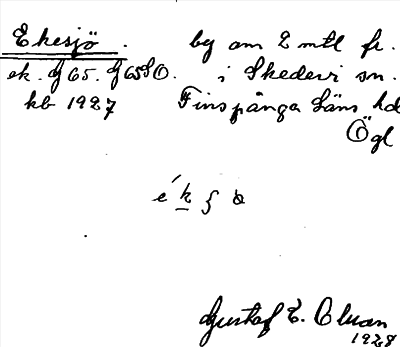 Ekesjö. by om 2 mtl fr.
ek. G 65. G 65 SO. i Skedevi sn.
kb 1927 Finspånga läns hd
Ögl
Gustaf E.
1928